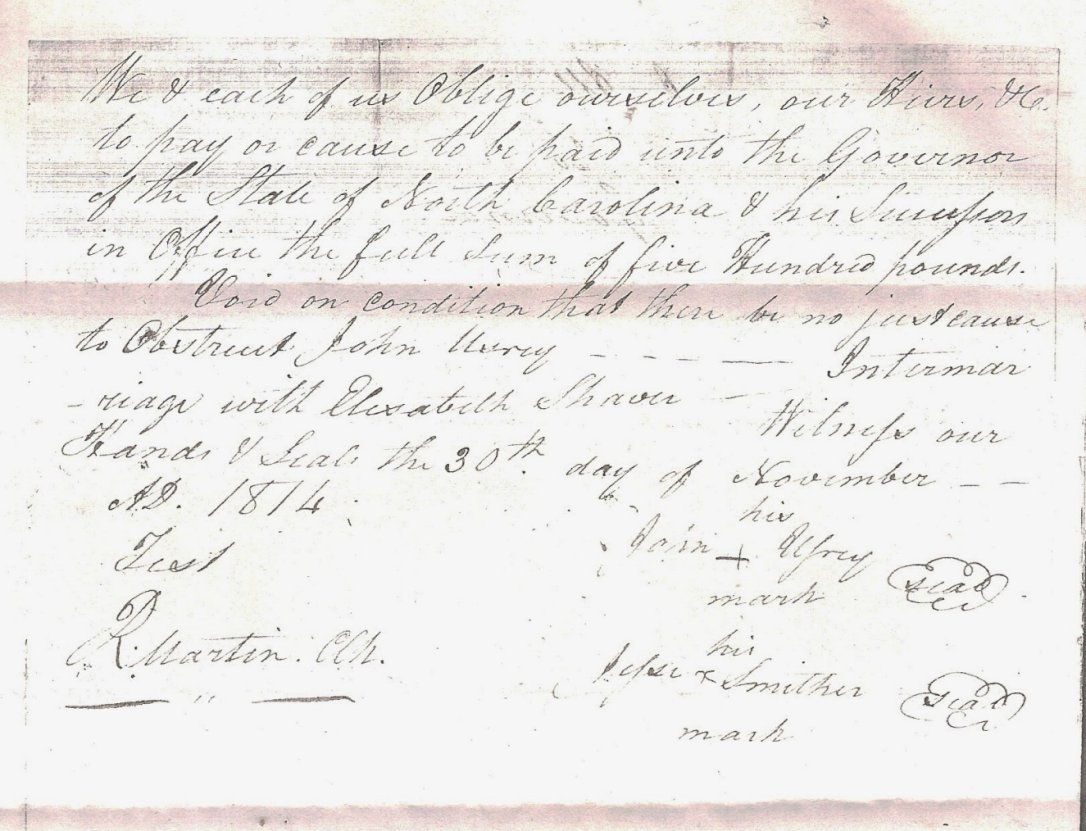 We & each of us Oblige ourselves, our Heirs, &c.
to pay or cause to be paid unto the Governor
of the State of North Carolina & his Successors
in Office the full Sum of five Hundred pounds.
Void on condition that there be no just cause
to Obstruct John Usrey - - - — — Intermar
-riage with Elesabeth Shaver — Witness our
Hands & Seals the 30th day of November - -
AD. 1814.
Test
his
John + Usrey Seal
mark
R. Martin. Clk.
his
Jesse x Smither Seal
mark